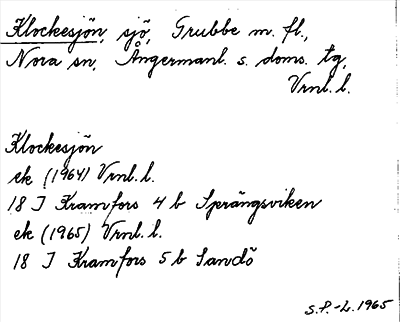 Klockesjön, sjö, Grubbe m. fl.,
Nora sn, Ångermanl. s. doms. tg,
Vrnl. l.
Klockesjön
ek (1964) Vrnl. l.
18 J Kramfors 4 b Sprängsviken
ek (1965) Vrnl. l.
18 J Kramfors 5 b Sandö
S.P.-L. 1965